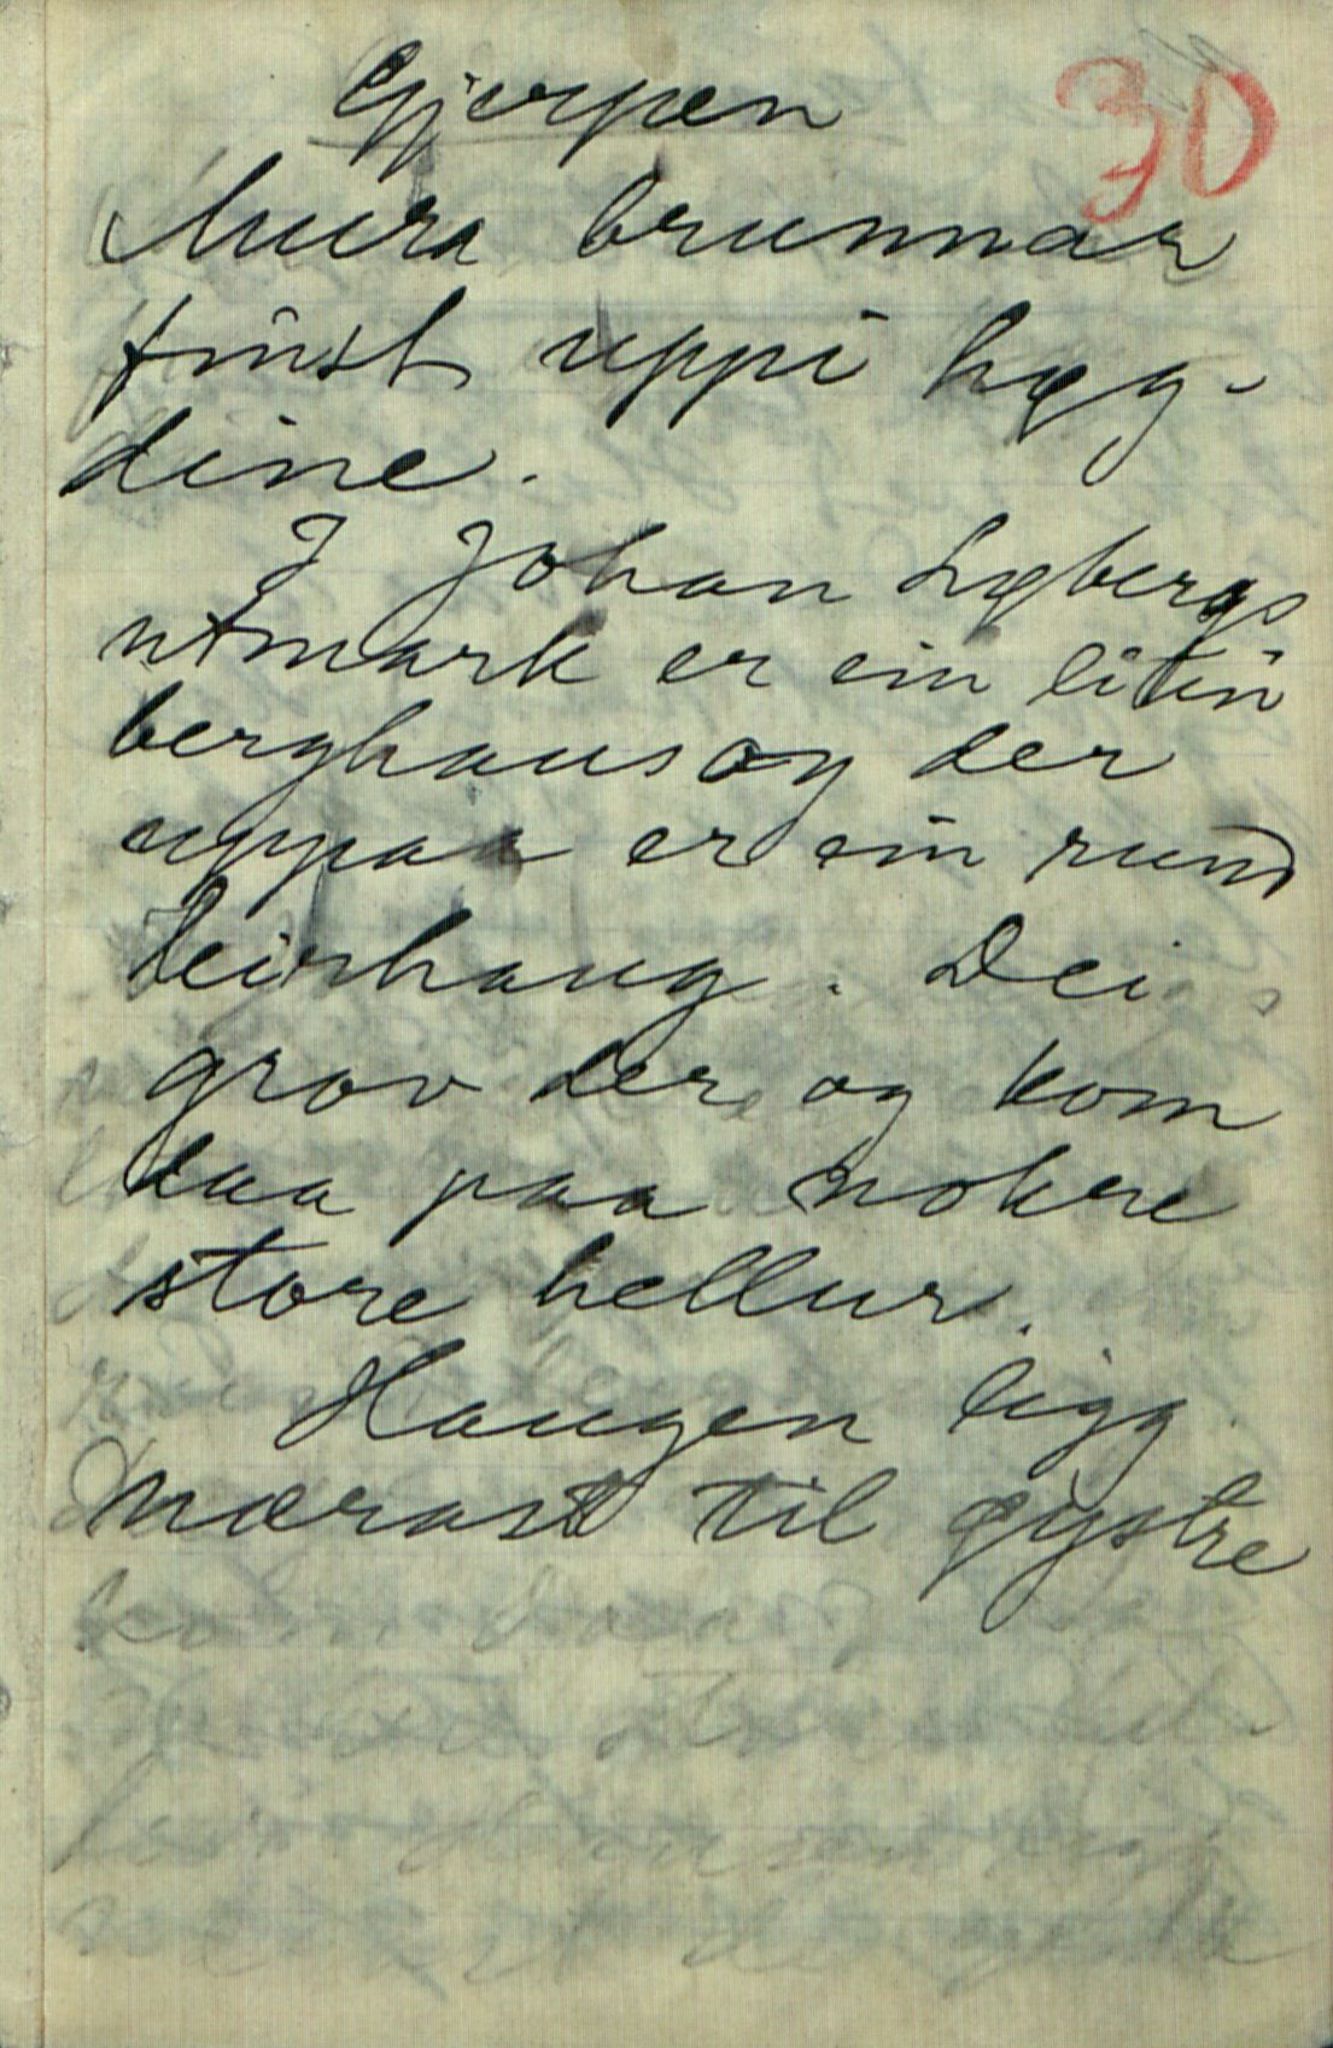 Gjerpen 30
Mura brunnar
finst uppi byg-
dine.
I Johan Lybergs
utmark er ein liten
berghaus og der
uppaa er ein rund
leirhaug. Dei
grov der og kom
daa paa nokre
store hellur.
Haugen ligg
nærast til øystre